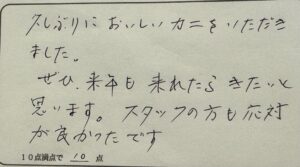 久しぶりにおいしいカニをいただき
ました。
ぜひ、来年も来れたらきたいと
思います。スタッフの方も応対
が良かったです
10点満点で 10 点